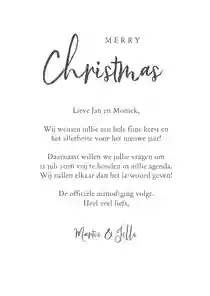 MERRY
Christmas
Lieve Jan en Moniek,
Wij wensen jullie een hele fijne kerst en
het allerbeste voor het nieuwe jaar!
Daarnaast willen we jullie vragen om
12 juli 2025 vrij te houden in jullie agenda.
Wij zullen elkaar dan het ja-woord geven!
De officiële uitnodiging volgt.
Heel veel liefs,
& Jelle